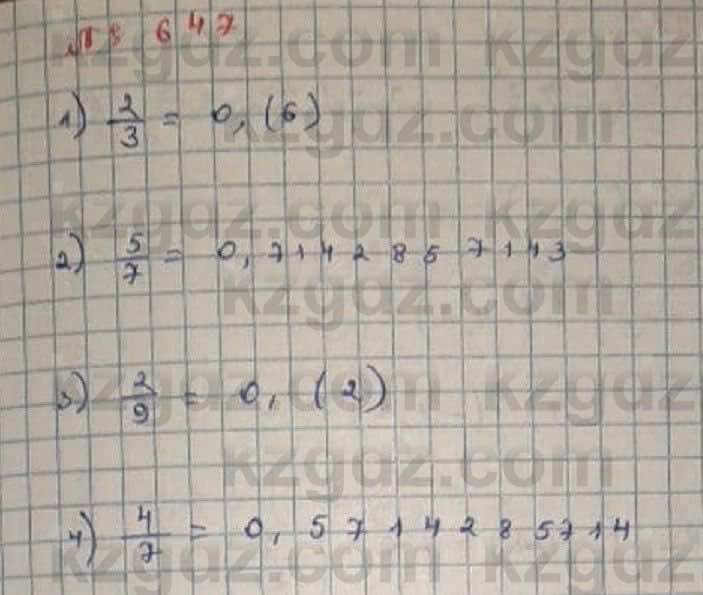 № 647
1) 2/3 = 0,(6)
2) 5/7 = 0,7142857143
3) 2/9 = 0,(2)
4) 4/7 = 0,5714285714
kzgdz.com